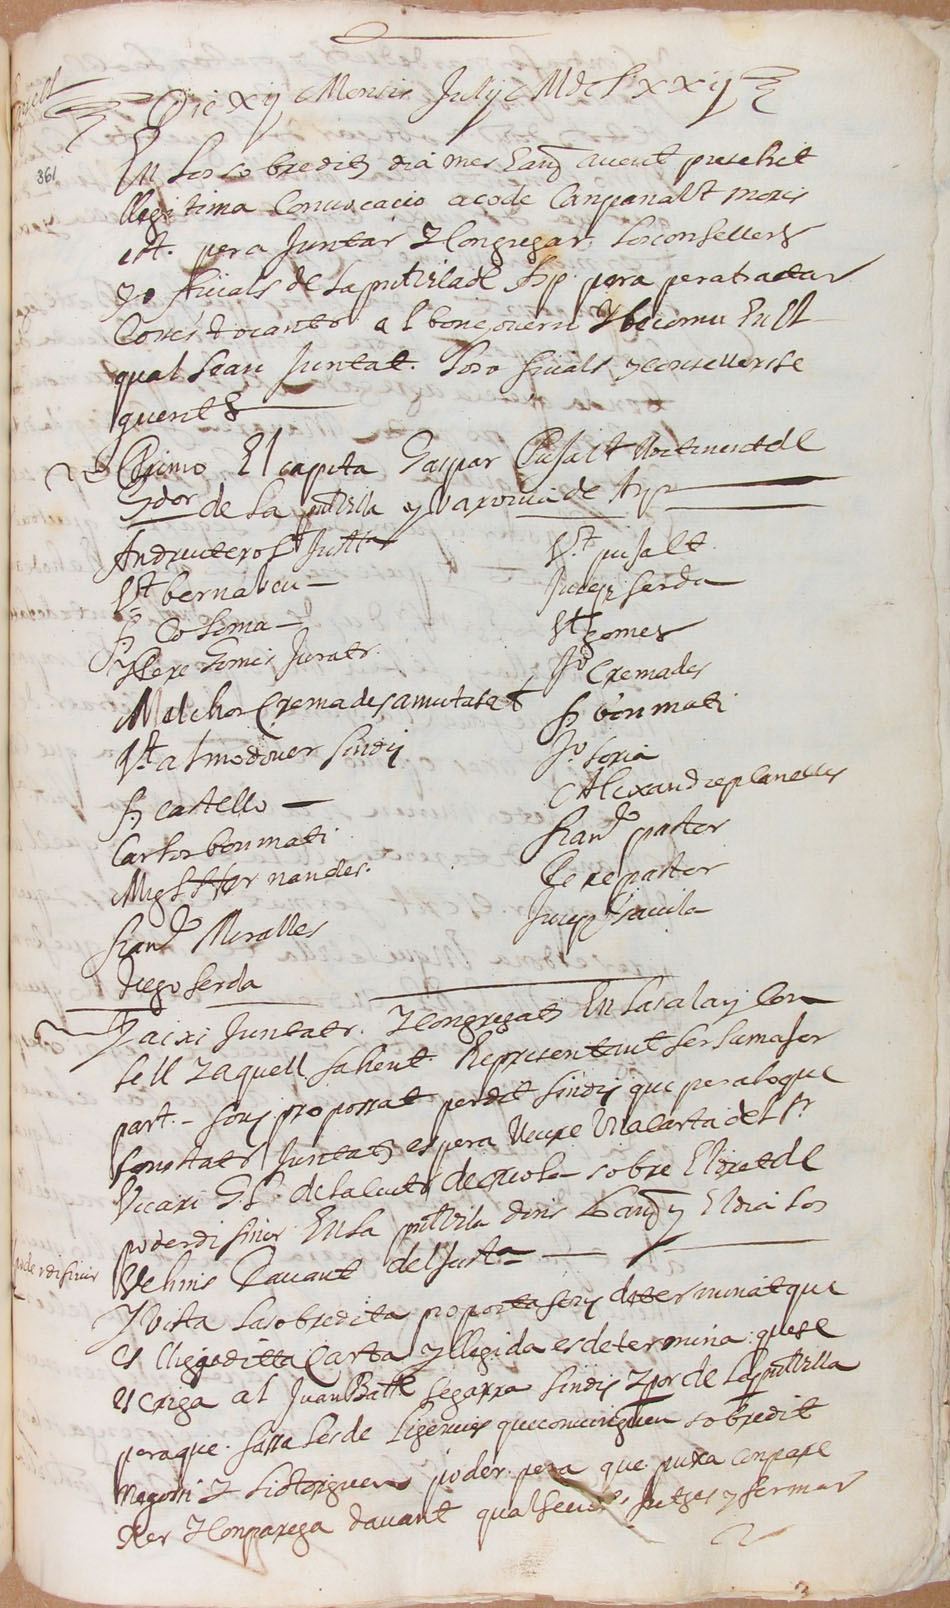 Consell
Die xij Mensis Julij MDCLxxij
361
En los sobredits dia mes E any avent presehit
llegitima Convocacio a so de Campana llt mores
est. pera Juntar y Congregar los consellers
y o ficials de la pnt vila de Asp pera pera tractar
Coses tocants al bon govern y be comu En lo
qual sean Juntat los o ficials y consellers se
quents
Primo El capita Gaspar Pujalt lloctinent de
Gdor de la pnt vila y varonia de Asp
Andreu terol Justia
Vt bernabeu
Fs Coloma
Pere Gomes Jurats
Melchor Cremades amutasaf
Vt almodover sindic
Fs castello
Carlos bonmati
Migl Hernandes
Frand Miralles
Diego serda
Vt pujalt
Jusep serda
Vt gomes
Jo Cremades
Fs bonmati
Jo soria
Alexandre planelles
Frand pastor
Pere pastor
Jusep Davila
Y aixi Juntats y Congregats En la sala y Con
sell y aquell fahent Representant ses la major
part – fonch proposat per dit sindic que pera lo que
son estats Juntats es pera veure Una Carta del Sr
Vicari Gl de la ciutat de oriola sobre El dret de
poder disinir En la pnt vila dins lany y El dia los
poder disinir
Vehins Davant del Justa
Y vista la sobredita proposta fonch determinat que
es lligga ditta Carta y llegida es determina que se
escriga al Juan Batte Segarra sindic y por de la pnt villa
pera que fassa les de ligencies que convinguen sobre dit
negosi y si li torguen poder pera que puxa conpare
xer y Conparega davant qualsevol Jutges y fermar